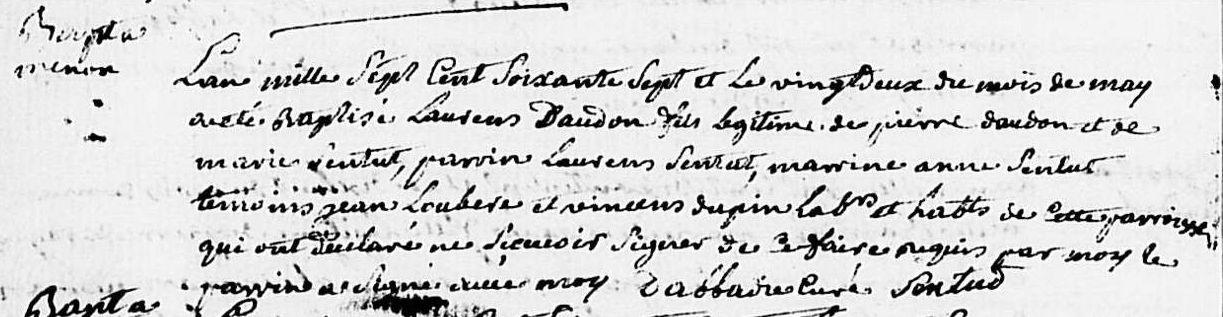 Bapta
menou
Lan mille sept cent soixante sept et le vingtdeux du mois de may
a eté Baptisé Laurens Daudon fils legitime de pierre daudon et de
marie sentut, parrin Laurens Sentut, marrine anne Sentut
temoins jean Loubere et vincens dupin Labrs et habts de cette parroisse
qui ont declaré ne scavoir signer de ce faire requis par moy le
parrin a signé avec moy Dabbadie curé Sentud
Bapta